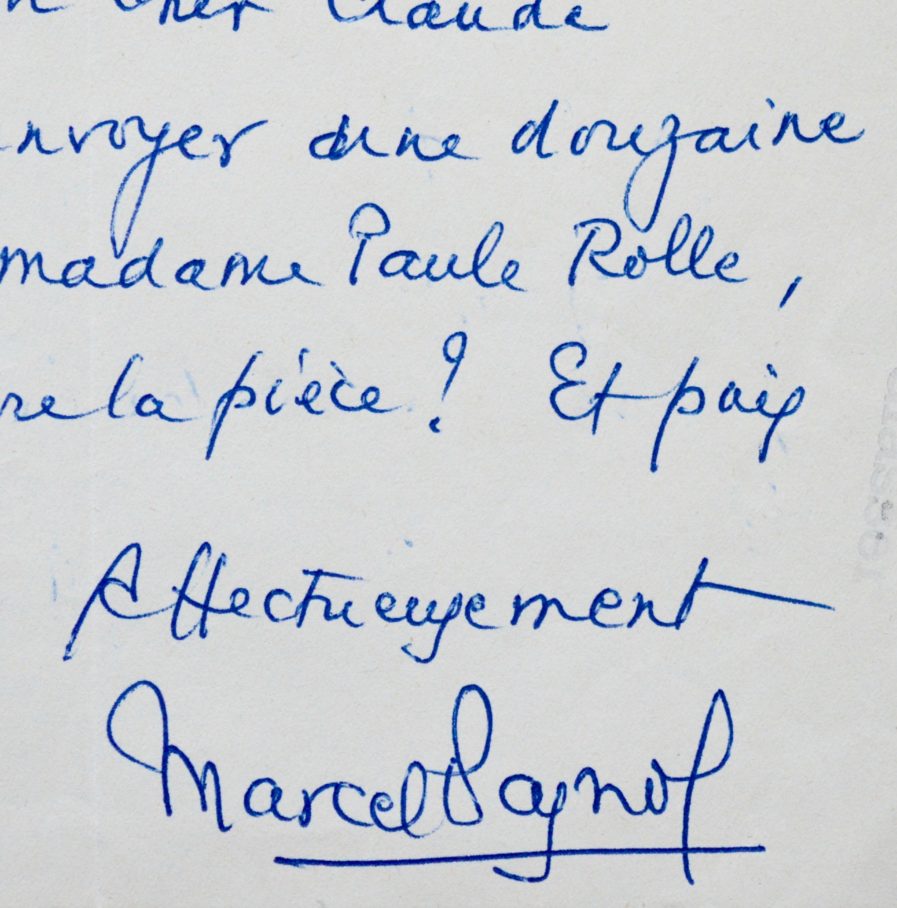 n cher Claude
nvoyer une douzaine
madame Paule Rolle,
re la pièce ? Et puis
Affectueusement
Marcel Pagnol